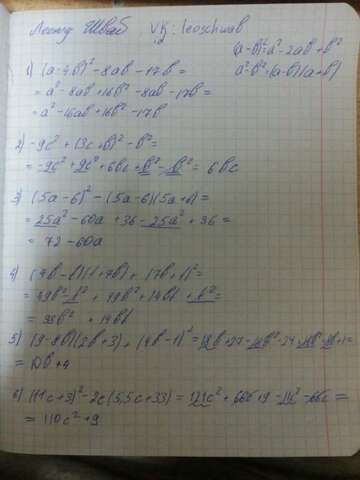 Леонид Шваб VK: leoschwab
(a-b)²=a²-2ab+b²
a²-b²=(a-b)(a+b)
1) (a-4b)²-8ab-17b=
=a²-8ab+16b²-8ab-17b=
=a²-16ab+16b²-17b
2) -9c²+(3c+b)²-b²=
=-9c²+9c²+6bc+b²-b²=6bc
3) (5a-6)²-(5a-6)(5a+6)=
=25a²-60a+36-25a²+36=
=72-60a
=49b²-t²+49b²+14bt+t²=
=98b²+14bt
=10b+4
6) (11c+3)²-2c(5,5c+33)=121c²+66c+9-11c²-66c=
=110c²+9